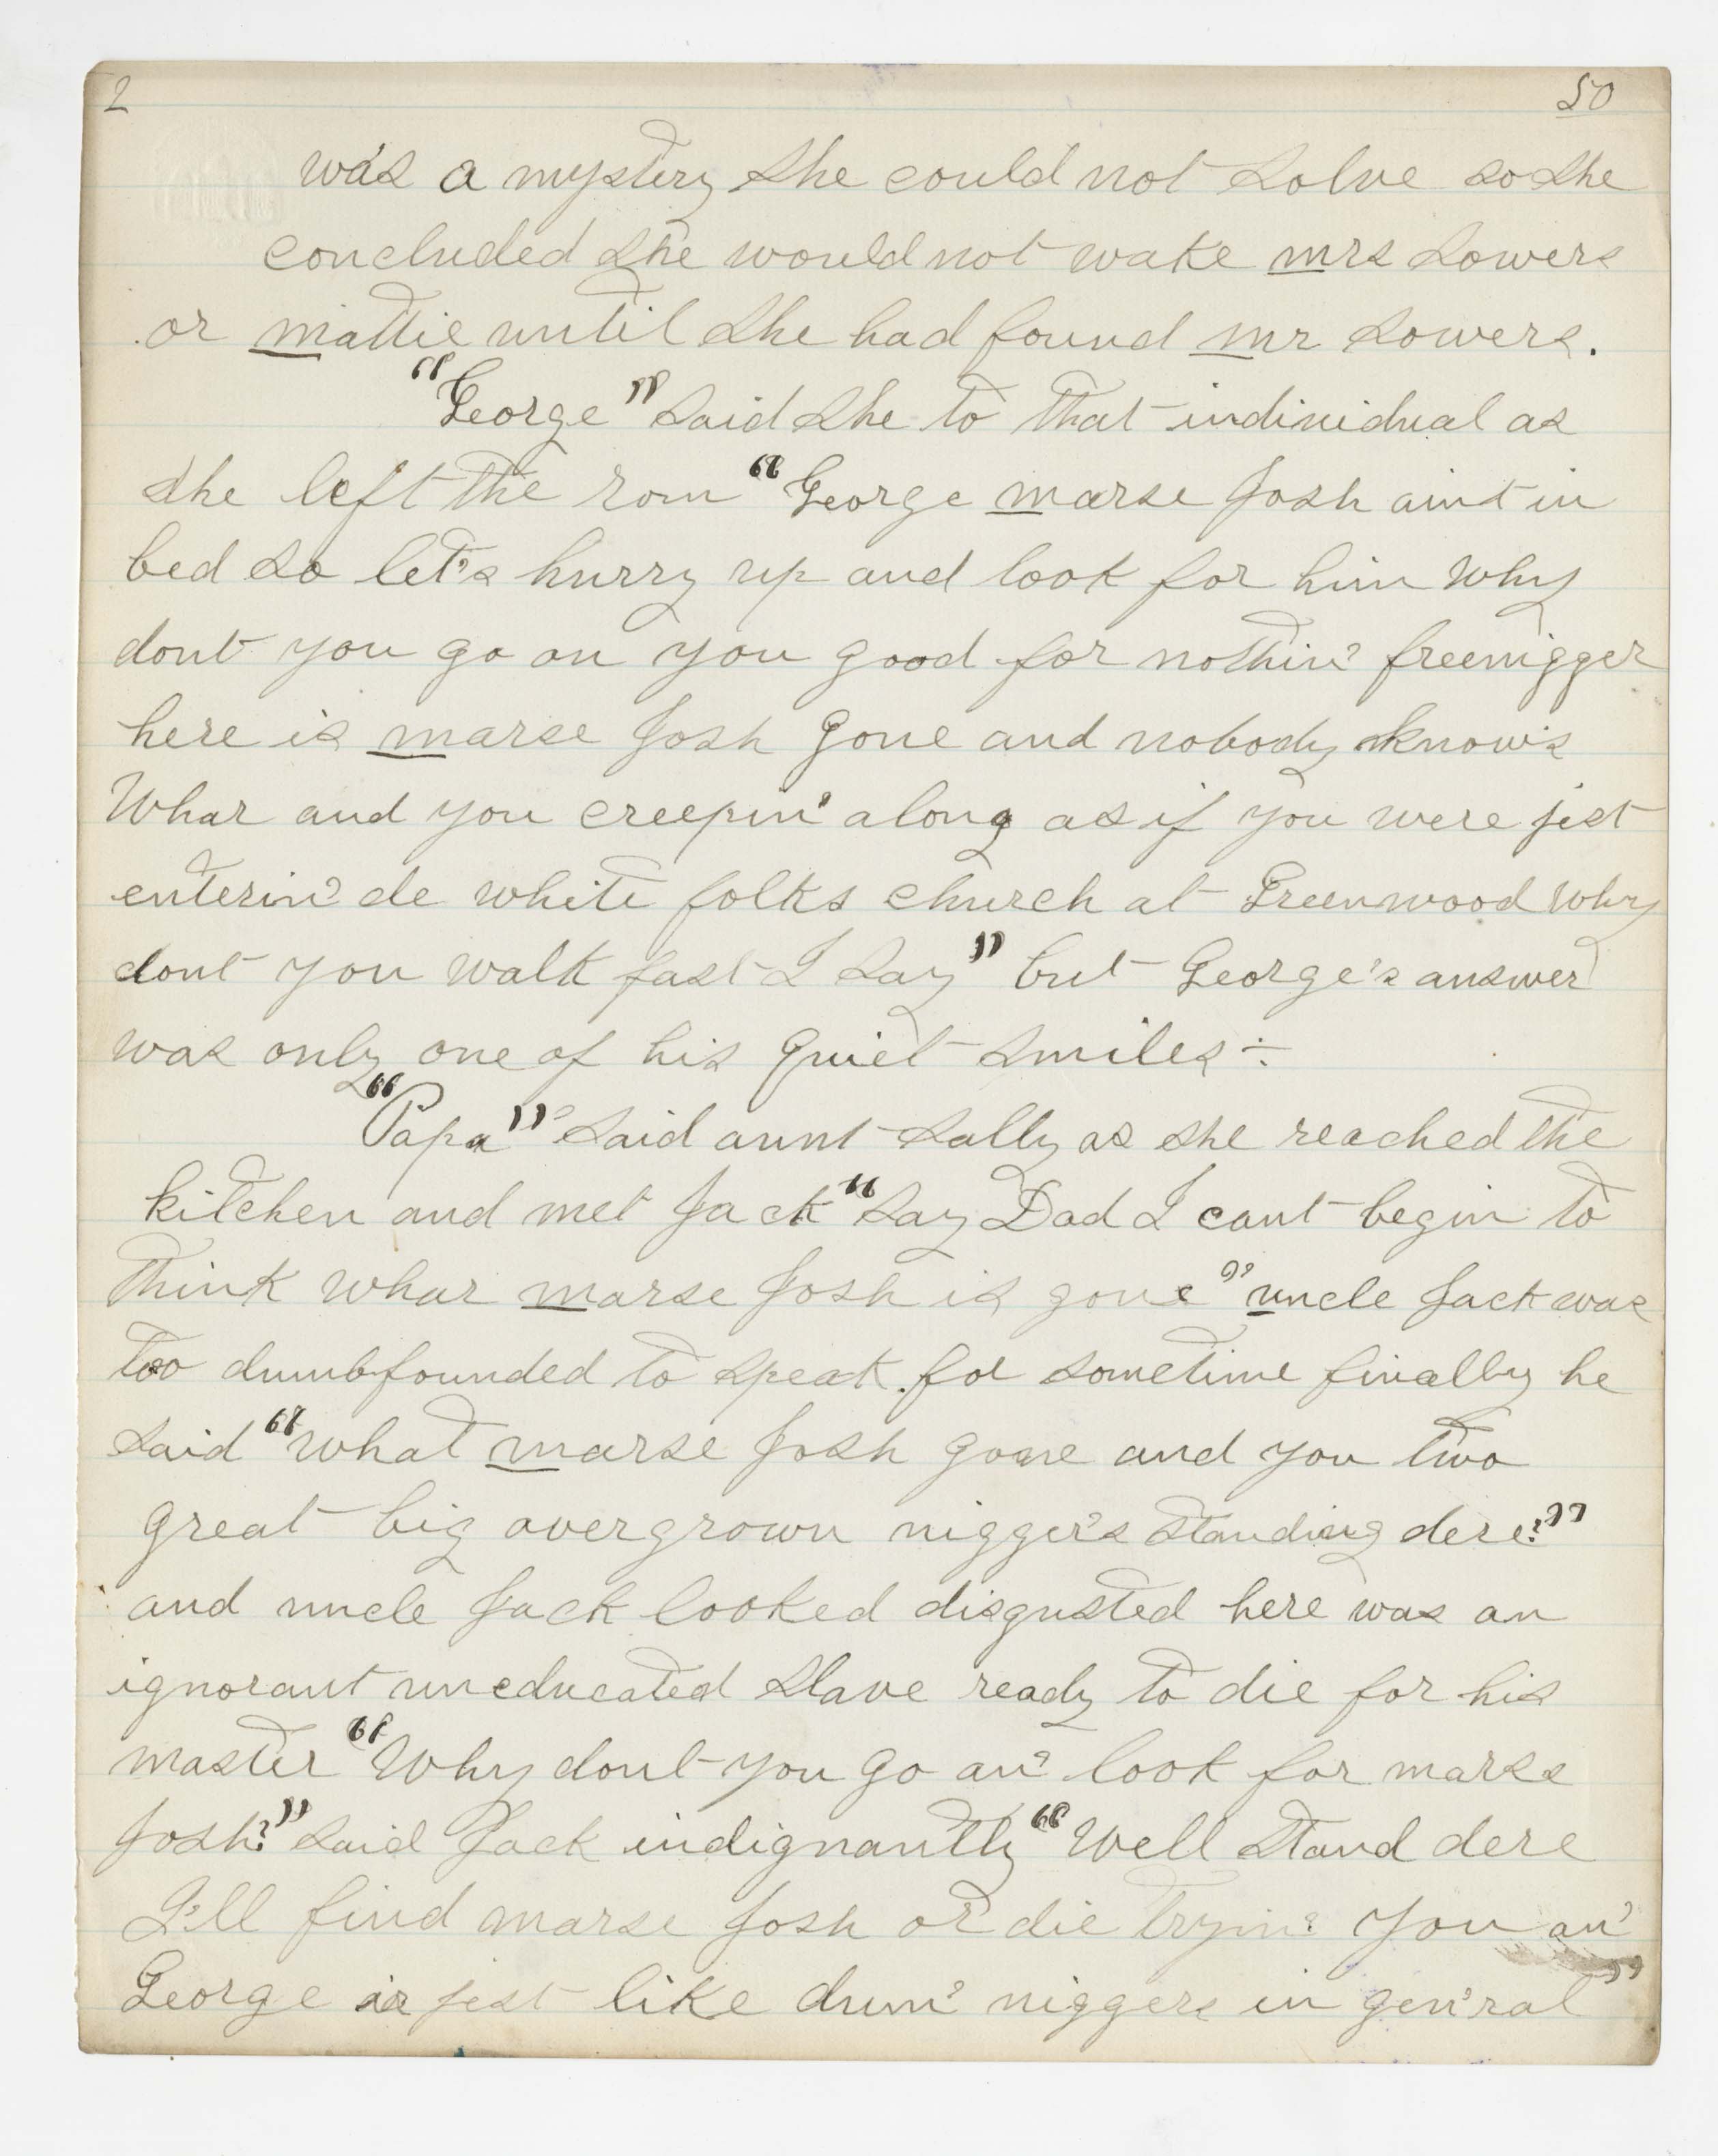 2 50
was a mystery she could not solve so she
concluded she would not wake mrs Sowers
or mattie until she had found mr Sowers.
"George" said she to that individual as
she left the rom "George marse Josh aint in
bed so let's hurry up and look for him Why
dont you go on you good for nothin' freenigger
here is marse Josh gone and nobody know's
Whar and you creepin' along as if you were jest
enterin' de white folks church at Greenwood Why
dont you walk fast I say" but George's answer
was only one of his quiet smiles÷
"Papa" said aunt Sally as she reached the
kitchen and met Jack "Say Dad I cant begin to
think whar marse Josh is gone" uncle Jack was
too dumbfounded to speak for sometime finally he
said "What marse Josh gone and you two
great big overgrown nigger's standing dere?"
and uncle Jack looked disgusted here was an
ignorant uneducated slave ready to die for his
master "Why dont you go an' look for marse
Josh?" said Jack indignantly "Well stand dere
I'll find marse Josh or die tryin' you an'
George is jest like dum' niggers in gen'ral"